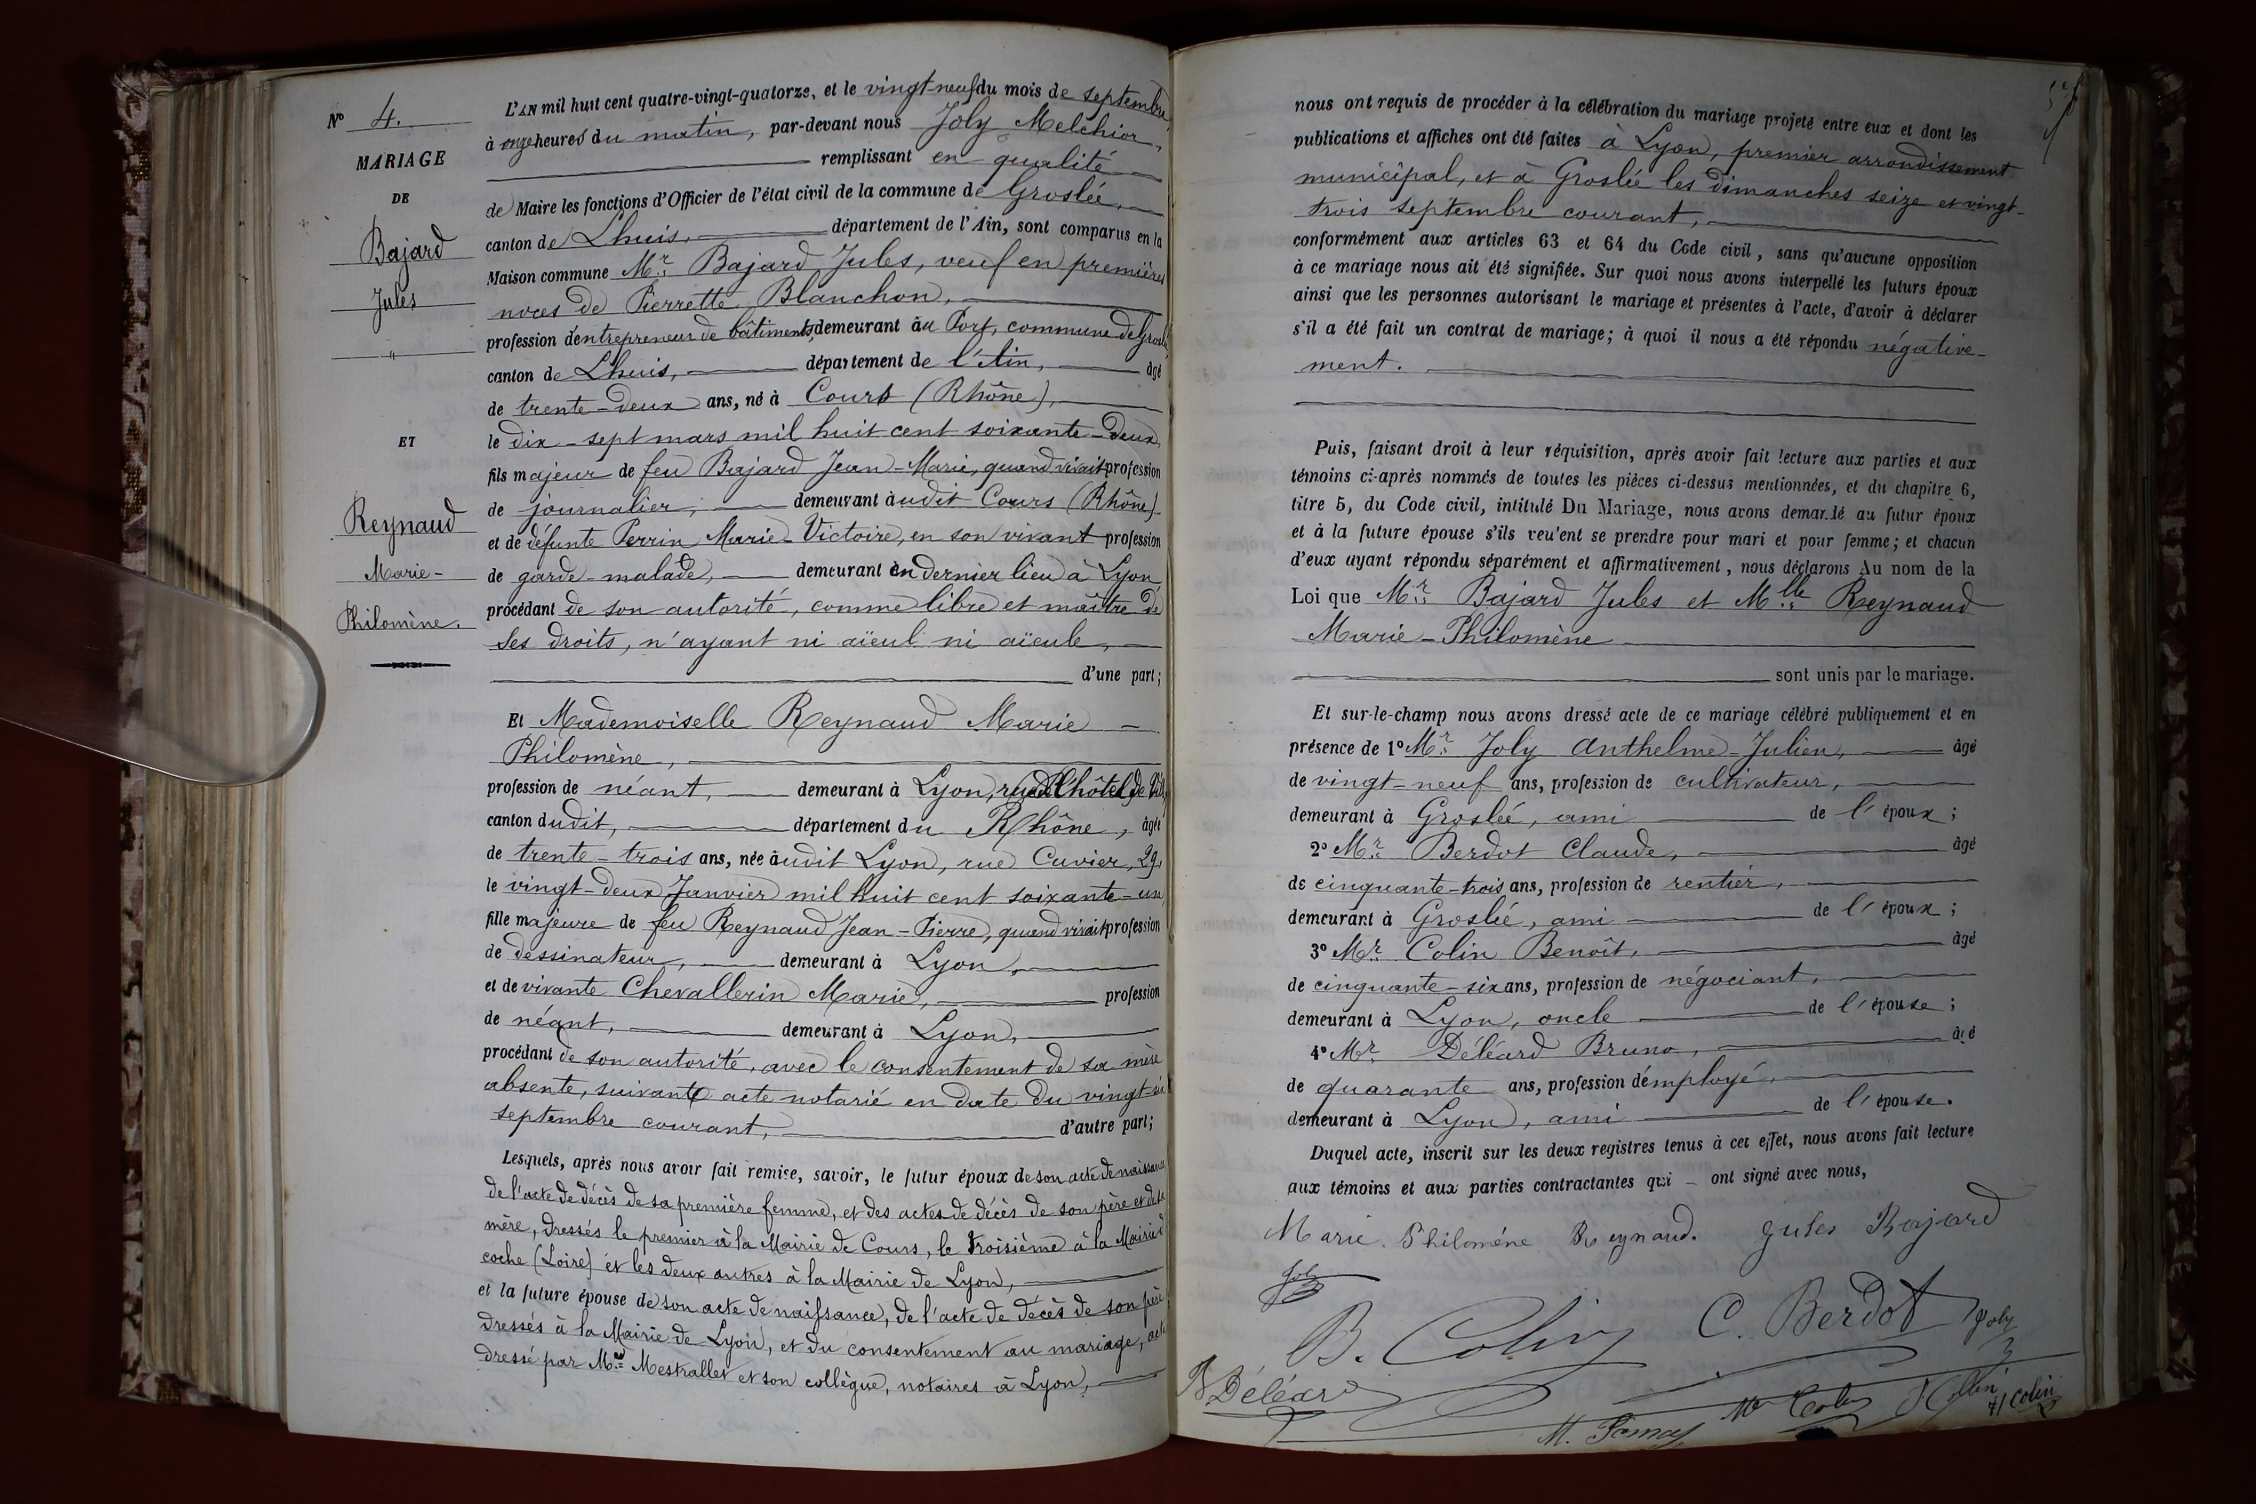 N° 4.
MARIAGE
DE
Bajard
Jules
"
ET
Reynaud
Marie-
Philomène.
L'AN mil huit cent quatre-vingt-quatorze, et le vingt-neuf du mois de septembre,
à onze heures du matin, par-devant nous Joly Melchior,
remplissant en qualité
de Maire les fonctions d'Officier de l'état civil de la commune de Groslée,
canton de Lhuis, département de l'Ain, sont comparus en la
Maison commune Mr Bajard Jules, veuf en premières
noces de Pierrette Blanchon,
profession d'entrepreneur de bâtiments, demeurant au Port, commune de Groslée
canton de Lhuis, département de l'Ain, âgé
de trente-deux ans, né à Cours (Rhône),
le dix-sept mars mil huit cent soixante-deux,
fils majeur de feu Bajard Jean-Marie, quand vivait profession
de journalier, demeurant audit Cours (Rhône)
et de défunte Perrin Marie-Victoire, en son vivant profession
de garde-malade, demeurant en dernier lieu à Lyon,
procédant de son autorité, comme libre et maître de
ses droits, n'ayant ni aïeul ni aïeule,
d'une part;
Et Mademoiselle Reynaud Marie
Philomène,
profession de néant, demeurant à Lyon, rue de l'hôtel de Ville,
canton dudit, département du Rhône, âgée
de trente-trois ans, née audit Lyon, rue Cuvier, 29,
le vingt-deux Janvier mil huit cent soixante-un,
fille majeure de feu Reynaud Jean-Pierre, quand vivait profession
de dessinateur, demeurant à Lyon,
et de vivante Chevallerin Marie, profession
de néant, demeurant à Lyon,
procédant de son autorité, avec le consentement de sa mère
absente, suivant acte notarié en date du vingt-six
septembre courant, d'autre part;
Lesquels, après nous avoir fait remise, savoir, le futur époux de son acte de naissance,
de l'acte de décès de sa première femme, et des actes de décès de son père et de sa
mère, dressés le premier à la Mairie de Cours, le troisième à la Mairie de
coche (Loire) et les deux autres à la Mairie de Lyon,
et la future épouse de son acte de naissance, de l'acte de décès de son père
dressés à la Mairie de Lyon, et du consentement au mariage, acte
dressé par Me Mestrallet et son collègue, notaires à Lyon,
nous ont requis de procéder à la célébration du mariage projeté entre eux et dont les
publications et affiches ont été faites à Lyon, premier arrondissement
municipal, et à Groslée les dimanches seize et vingt-
trois septembre courant,
conformément aux articles 63 et 64 du Code civil, sans qu'aucune opposition
à ce mariage nous ait été signifiée. Sur quoi nous avons interpellé les futurs époux
ainsi que les personnes autorisant le mariage et présentes à l'acte, d'avoir à déclarer
s'il a été fait un contrat de mariage; à quoi il nous a été répondu négative-
ment.
Puis, faisant droit à leur réquisition, après avoir fait lecture aux parties et aux
témoins ci-après nommés de toutes les pièces ci-dessus mentionnées, et du chapitre 6,
titre 5, du Code civil, intitulé Du Mariage, nous avons demandé au futur époux
et à la future épouse s'ils veulent se prendre pour mari et pour femme; et chacun
d'eux ayant répondu séparément et affirmativement, nous déclarons Au nom de la
Loi que Mr Bajard Jules et Mlle Reynaud
Marie-Philomène
sont unis par le mariage.
Et sur-le-champ nous avons dressé acte de ce mariage célébré publiquement et en
présence de 1° Mr Joly Anthelme-Julien, âgé
de vingt-neuf ans, profession de cultivateur,
demeurant à Groslée, ami de l'époux;
2° Mr Berdot Claude, âgé
de cinquante-trois ans, profession de rentier,
demeurant à Groslée, ami de l'époux;
3° Mr Colin Benoît, âgé
de cinquante-six ans, profession de négociant,
demeurant à Lyon, oncle de l'épouse;
4° Mr Déléard Bruno, âgé
de quarante ans, profession d'employé,
demeurant à Lyon, ami de l'épouse.
Duquel acte, inscrit sur les deux registres tenus à cet effet, nous avons fait lecture
aux témoins et aux parties contractantes qui ont signé avec nous,
Marie Philoméne Reynaud. Jules Bajard
Joly
B. Colin C. Berdot Joly
B Déléard
M. Colin Colin